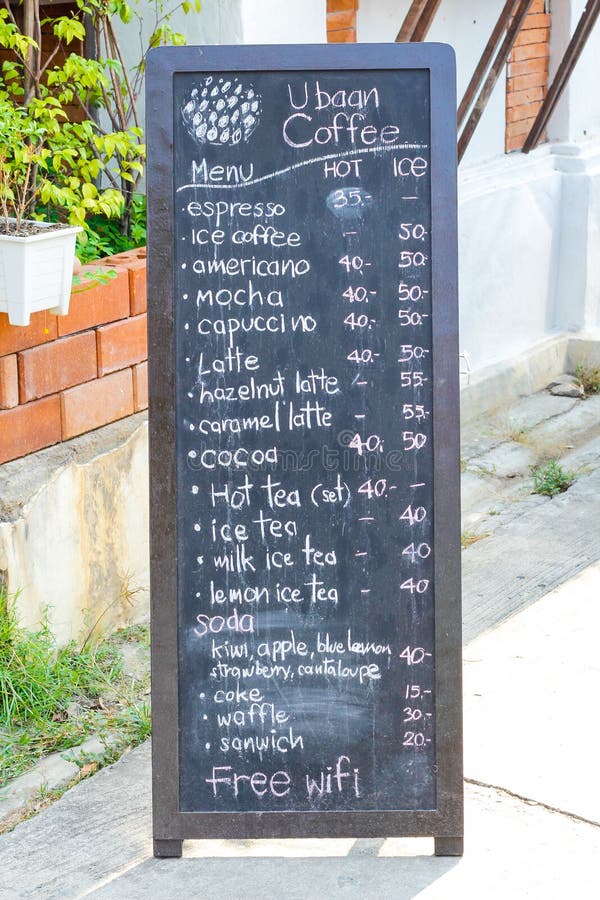 Ubaan
Coffee
Menu HOT ICE
• espresso 35.- -
• Ice coffee - 50.-
• americano 40.- 50.-
• Mocha 40.- 50.-
• capuccino 40.- 50.-
• Latte 40.- 50.-
• hazelnut latte - 55.-
• caramel latte - 55.-
• cocoa 40. 50
• Hot tea (set) 40.- -
• ice tea - 40
• milk ice tea - 40
• lemon ice tea - 40
soda
kiwi, apple, blue lemon 40.-
strawberry, cantaloupe
• coke 15.-
• waffle 30.-
• sanwich 20.-
Free wifi
dreamstime.com